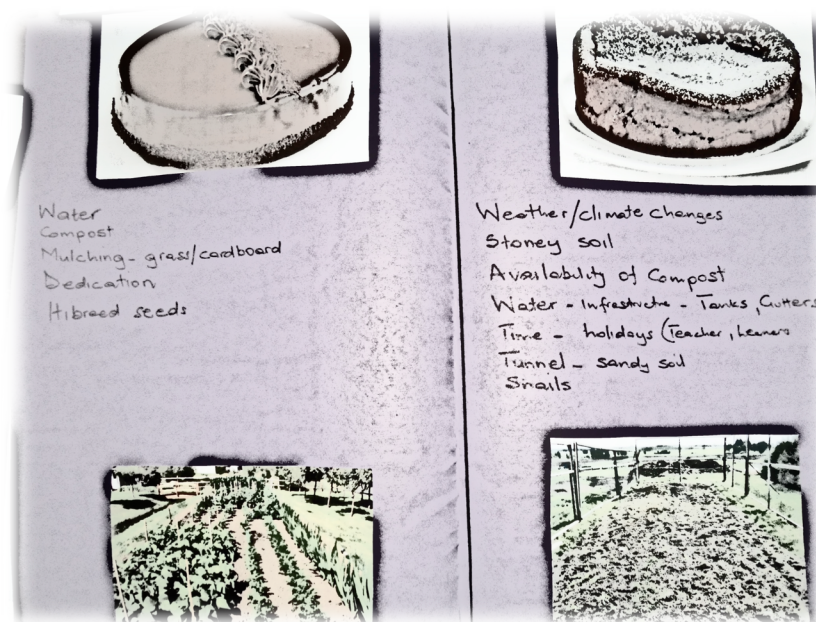 Water
Compost
Mulching - grass/cardboard
Dedication
Hibreed seeds
Weather/climate changes
Stoney soil
Availability of Compost
Water - Infrastructre - Tanks, Gutters
Time - holidays (Teacher, Learners
Tunnel - sandy soil
Snails